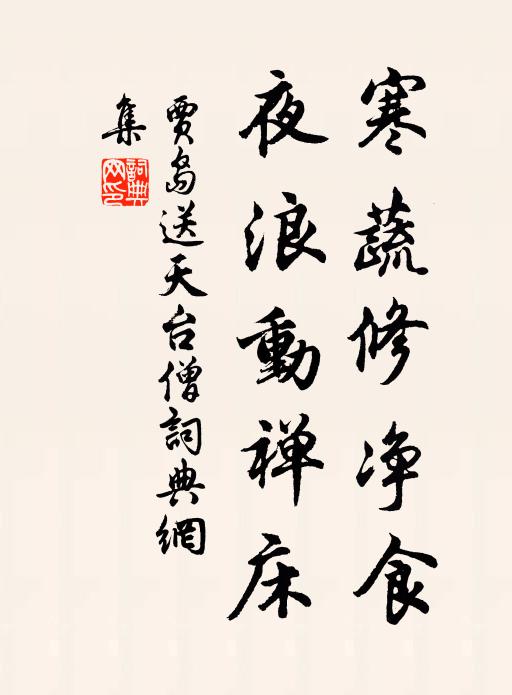 寒蔬修净食
夜浪動禅床
賈島送天台僧詞典網
集
詞典網印